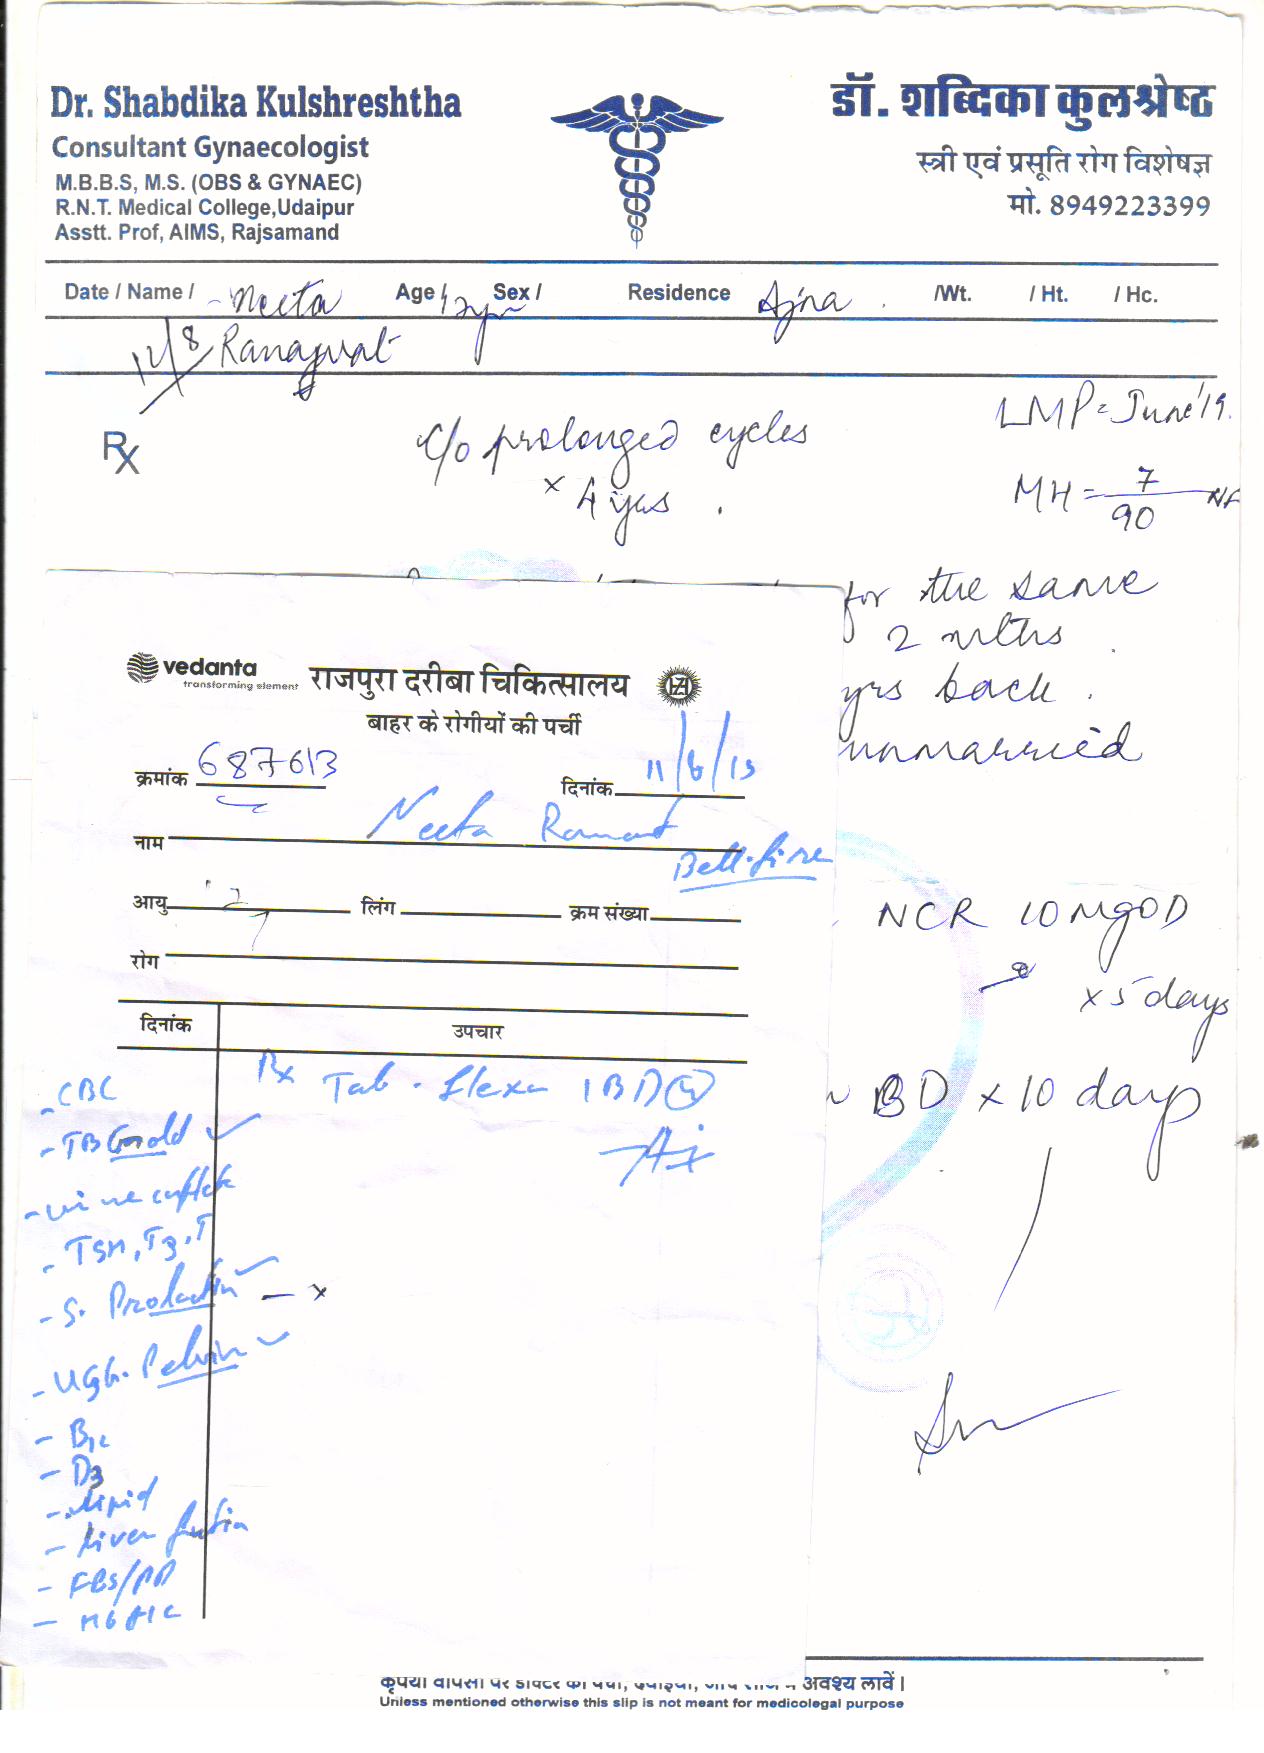 Dr. Shabdika Kulshreshtha
Consultant Gynaecologist
M.B.B.S, M.S. (OBS & GYNAEC)
R.N.T. Medical College,Udaipur
Asstt. Prof, AIMS, Rajsamand
डॉ. शब्दिका कुलश्रेष्ठ
स्त्री एवं प्रसूति रोग विशेषज्ञ
मो. 8949223399
Date / Name / Neeta Age / Sex / Residence /Wt. / Ht. / Hc.
Ranawat
LMP = June'19.
Rx c/o prolonged cycles
x 4 yrs.
MH = 7/90
for the same
2 mths
yrs back.
unmarried
NCR 10 mg OD
x 5 days
BD x 10 days
vedanta
transforming element
राजपुरा दरीबा चिकित्सालय
बाहर के रोगीयों की पर्ची
क्रमांक 687613 दिनांक
नाम Neeta
आयु लिंग क्रम संख्या
रोग
दिनांक उपचार
Rx Tab. 1 BD
- CBC
- TB Gold
- TSH, T3, T
- S. Prolactin - x
- USG. Pelvin
- B12
- D3
- Lipid
- Liver
- FBS/PP
- Hb A1C
अवश्य लावें।
Unless mentioned otherwise this slip is not meant for medicolegal purpose